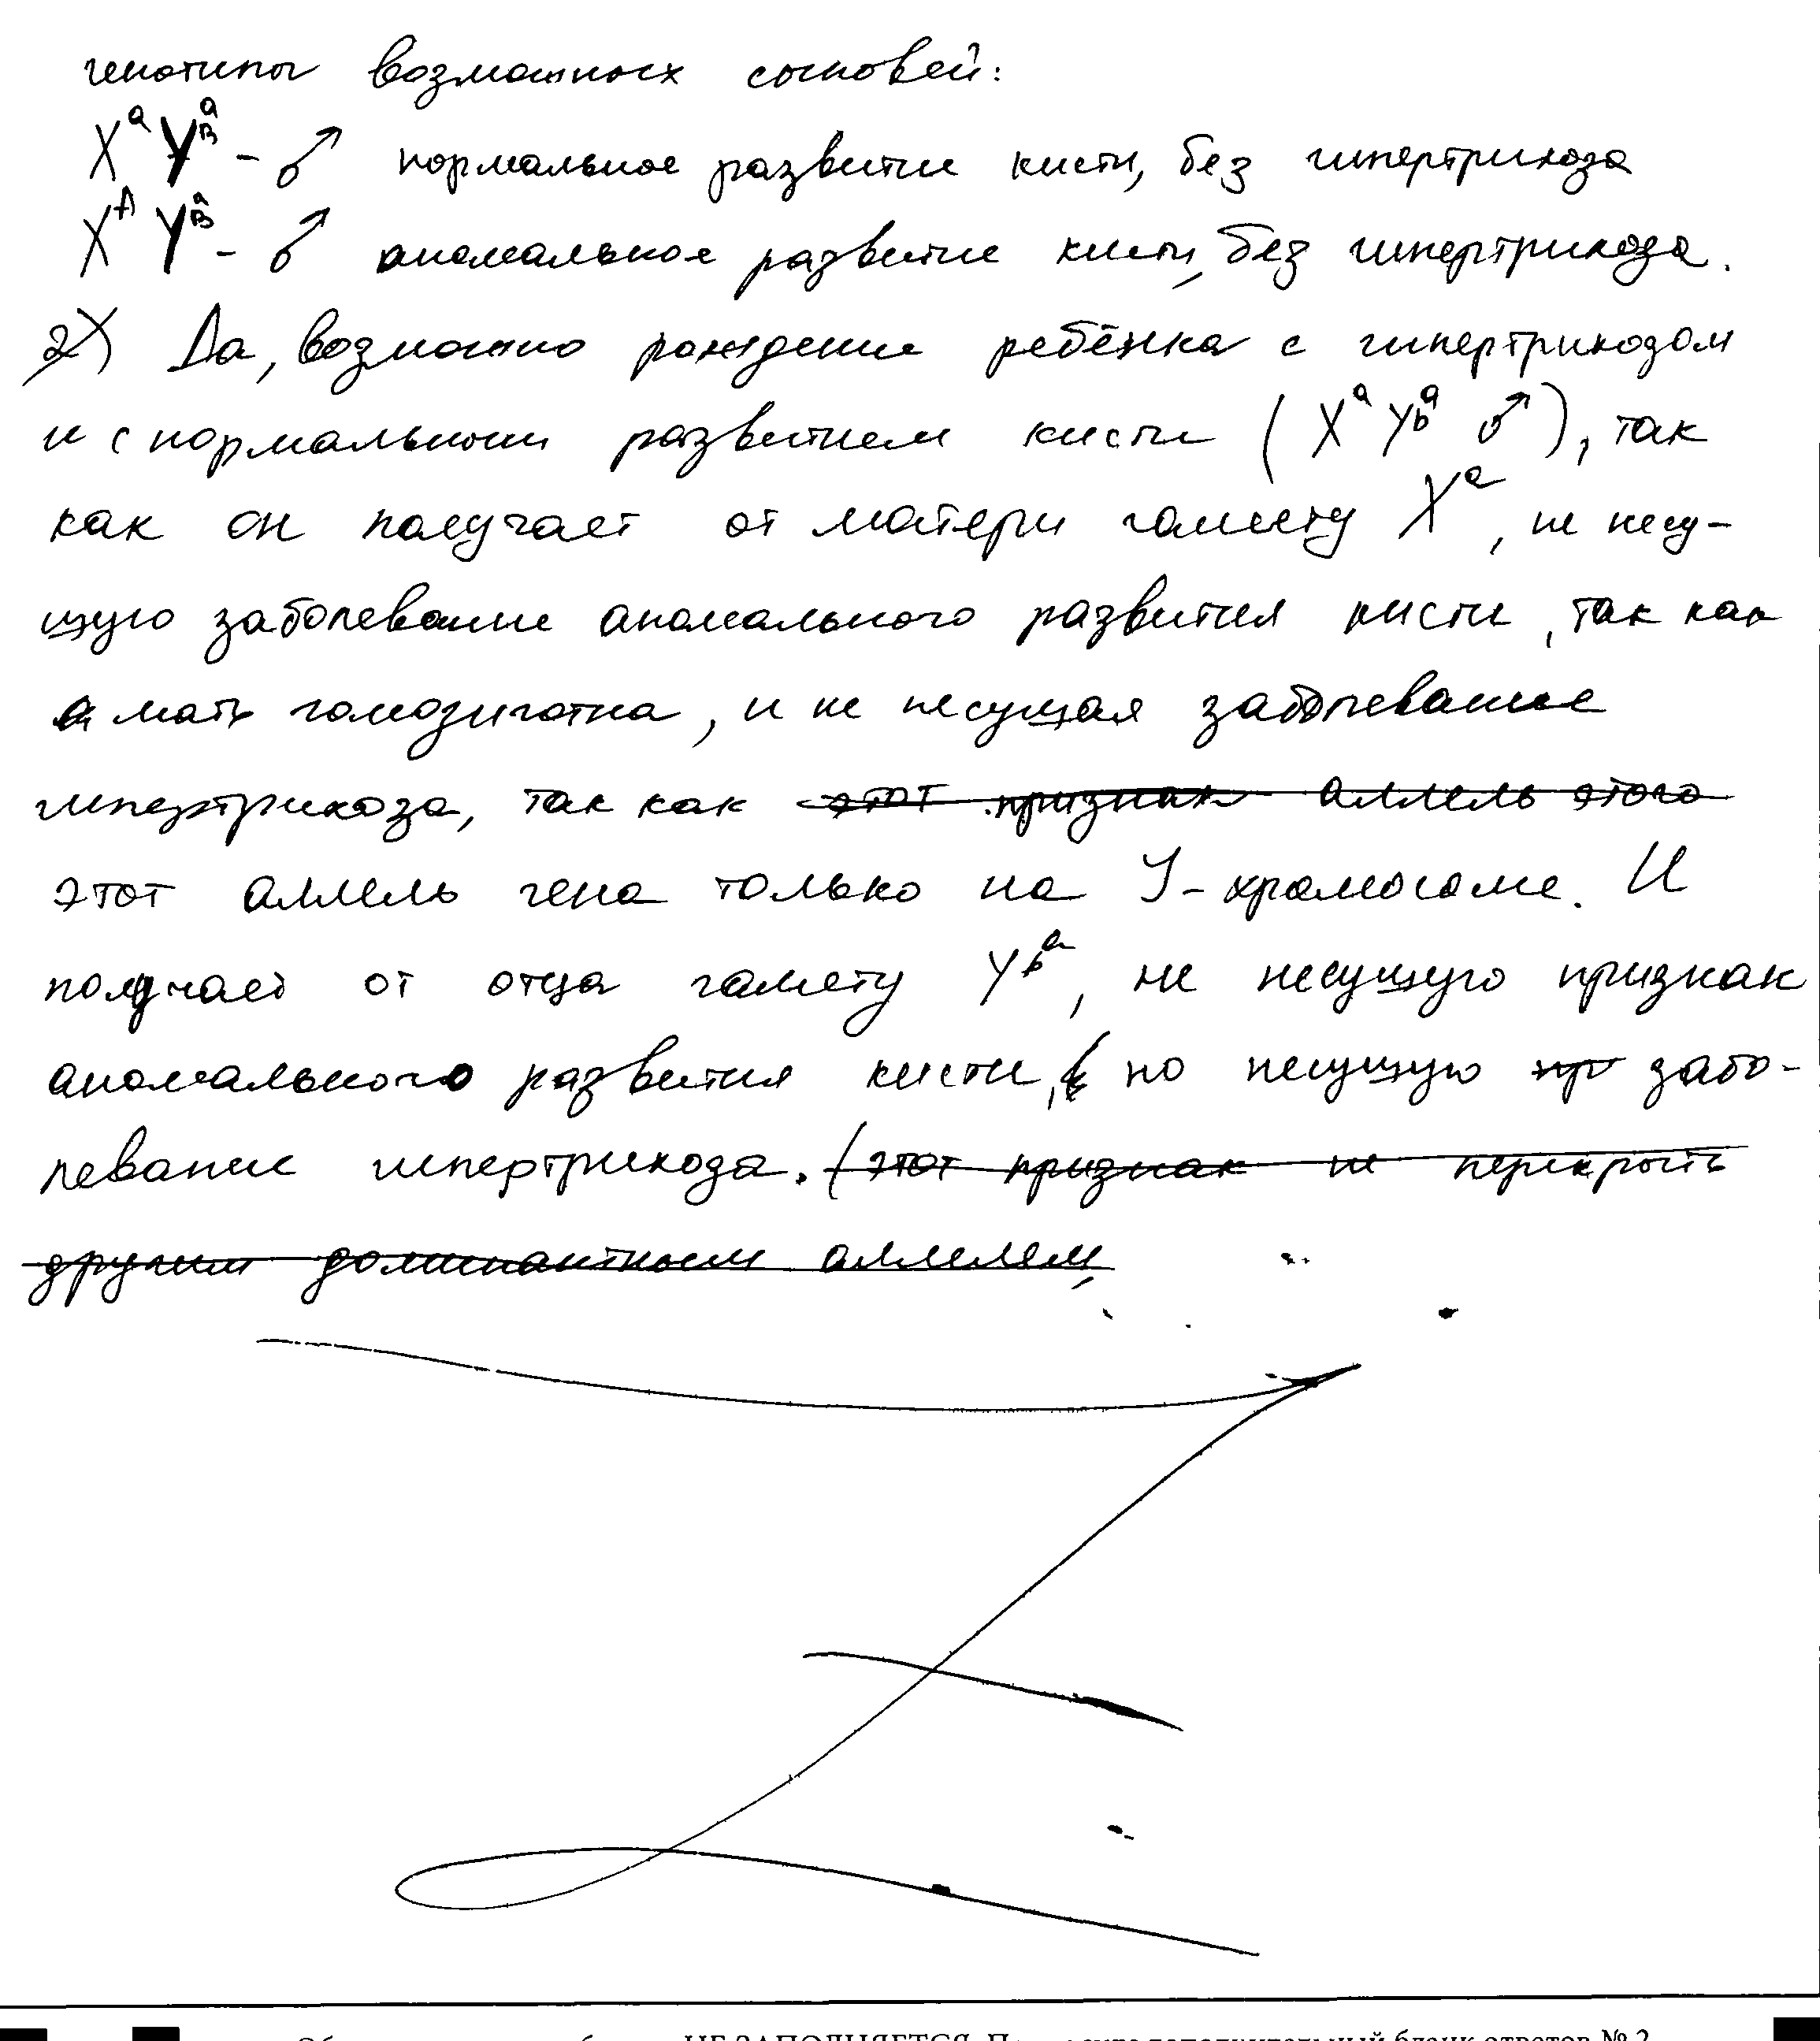 генотипы возможных сыновей:
XᵃYᵃ_B - ♂ нормальное развитие кисти, без гипертрихоза
XᴬYᵃ_B - ♂ аномальное развитие кисти, без гипертрихоза.
2) Да, возможно рождение ребёнка с гипертрихозом
и с нормальным развитием кисти (XᵃYᵃ_b ♂), так
как он получает от матери гамету Xᵃ, не несу-
щую заболевание аномального развития кисти, так как
мать гомозиготна, и не несущая заболевание
гипертрихоза, так как этот признак аллель этого
этот аллель гена только на Y-хромосоме. И
получает от отца гамету Yᵃ_b, не несущую признак
аномального развития кисти, но несущую пр забо-
левание гипертрихоза. (этот признак не перекрыть
другим доминантным аллелем
НЕ ЗАПОЛНЯЕТСЯ. бланк ответов № 2